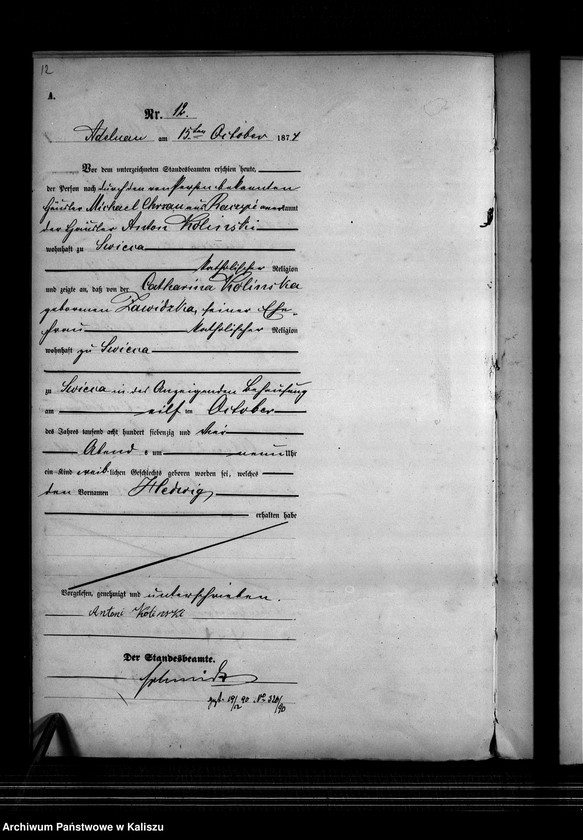 12
A.
Nr. 12.
Adelnau am 15ten October 1874
Vor dem unterzeichneten Standesbeamten erschien heute,
der Person nach durch den von Person bekannten
Häusler Michael aus anerkannt
der Häusler Anton Kolinski
wohnhaft zu Swieca
katholischer Religion
und zeigte an, daß von der Catharina Kolinska
gebornen Zawidzka, seiner Ehe-
frau katholischer Religion
wohnhaft zu Swieca
zu Swieca in des Anzeigenden Behausung
am eilf ten October
des Jahres tausend acht hundert siebenzig und vier
Abend s um neun Uhr
ein Kind weib lichen Geschlechts geboren worden sei, welches
den Vornamen Hedwig
erhalten habe
Vorgelesen, genehmigt und unterschrieben.
Antoni Kolinski
Der Standesbeamte.
Schmidt
19/12 90 No
Archiwum Państwowe w Kaliszu